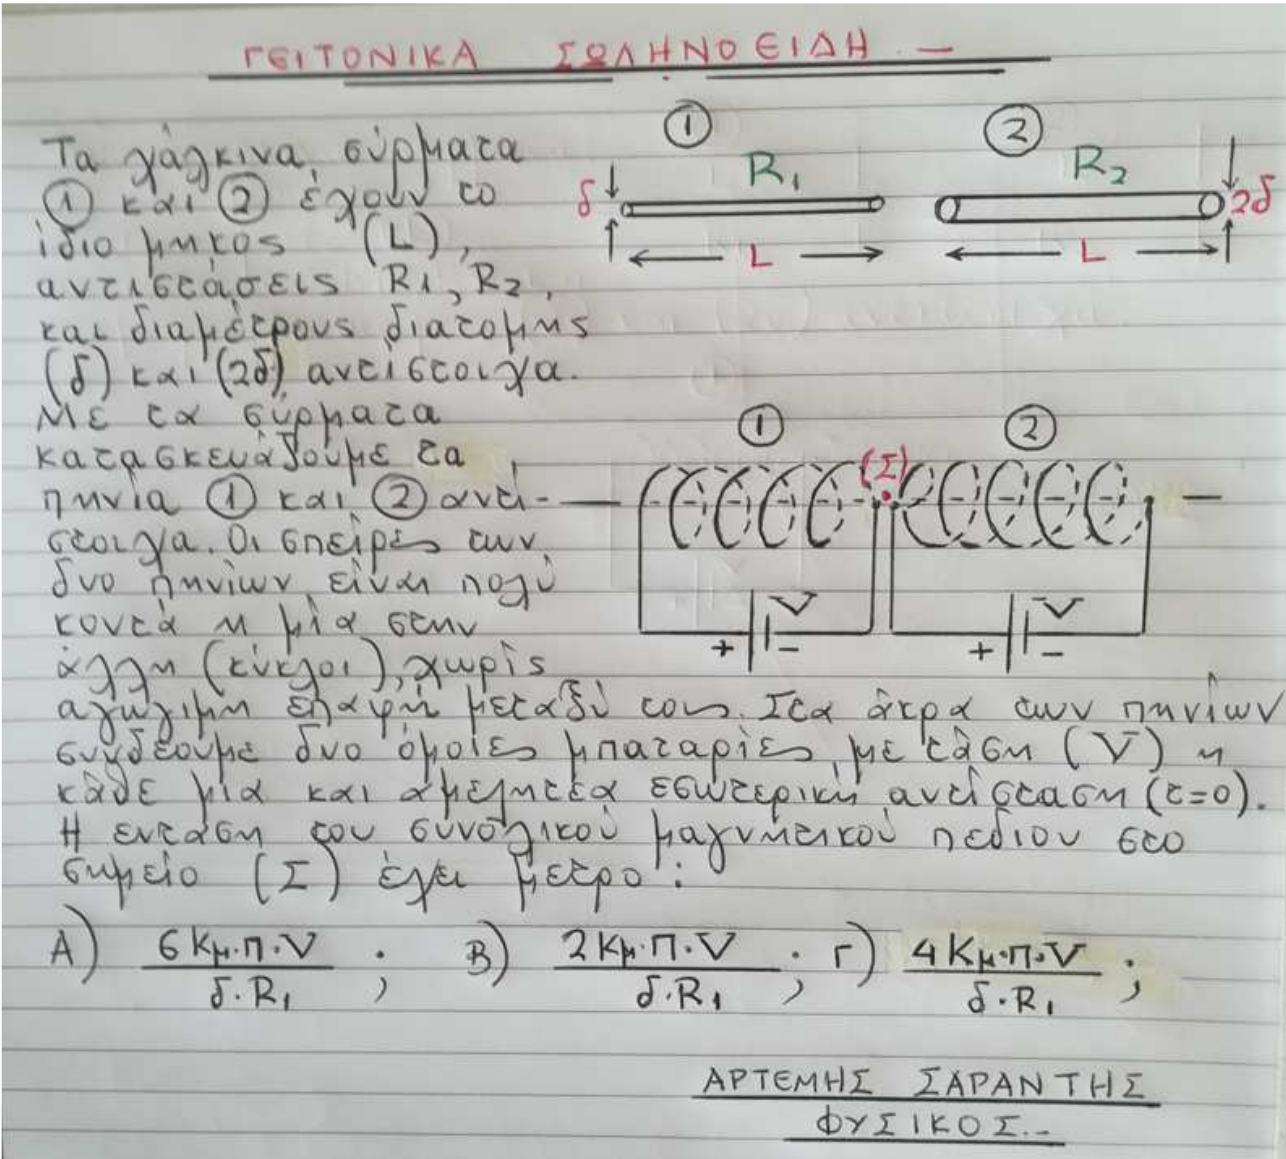 ΓΕΙΤΟΝΙΚΑ ΣΩΛΗΝΟΕΙΔΗ.—
① ②
R₁ R₂
δ 2δ
L L
Τα χάλκινα σύρματα
① και ② έχουν το
ίδιο μήκος (L),
αντιστάσεις R₁, R₂,
και διαμέτρους διατομής
(δ) και (2δ) αντίστοιχα.
Με τα σύρματα
κατασκευάζουμε τα
πηνία ① και ② αντί-
στοιχα. Οι σπείρες των
δυο πηνίων είναι πολύ
κοντά η μία στην
άλλη (κύκλοι), χωρίς
αγώγιμη επαφή μεταξύ τους. Στα άκρα των πηνίων
συνδέουμε δυο όμοιες μπαταρίες, με τάση (V) η
κάθε μία και αμελητέα εσωτερική αντίσταση (r=0).
Η ένταση του συνολικού μαγνητικού πεδίου στο
σημείο (Σ) έχει μέτρο :
① ②
(Σ)
V V
+ - + -
Α) 6Κμ·π·V / δ·R₁ ; Β) 2Κμ·π·V / δ·R₁ ; Γ) 4Κμ·π·V / δ·R₁ ;
ΑΡΤΕΜΗΣ ΣΑΡΑΝΤΗΣ
ΦΥΣΙΚΟΣ.-